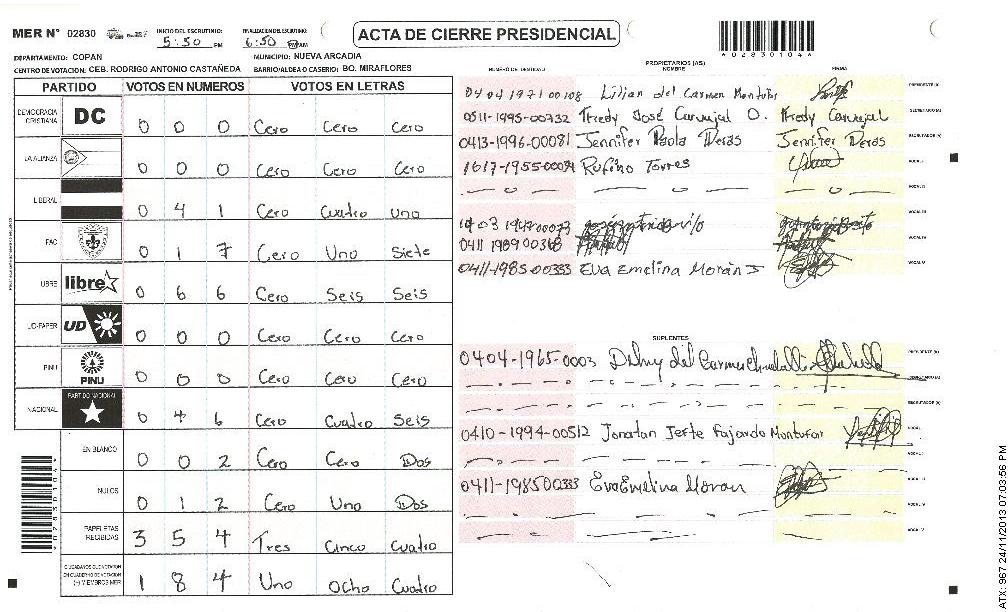 MER N° 02830
INICIO DEL ESCRUTINIO:
5:50 PM
FINALIZACION DEL ESCRUTINIO:
6:50 PM
ACTA DE CIERRE PRESIDENCIAL
*028301041*
DEPARTAMENTO: COPAN
MUNICIPIO: NUEVA ARCADIA
CENTRO DE VOTACION: CEB. RODRIGO ANTONIO CASTAÑEDA
BARRIO/ALDEA O CASERIO: BO. MIRAFLORES
PARTIDO VOTOS EN NUMEROS VOTOS EN LETRAS
DEMOCRACIA CRISTIANA DC 0 0 0 Cero Cero Cero
LA ALIANZA 0 0 0 Cero Cero Cero
LIBERAL 0 4 1 Cero Cuatro Uno
PAC 0 1 7 Cero Uno Siete
LIBRE libre 0 6 6 Cero Seis Seis
UD-FAPER UD 0 0 0 Cero Cero Cero
PINU PINU 0 0 0 Cero Cero Cero
NACIONAL PARTIDO NACIONAL 0 4 6 Cero Cuatro Seis
EN BLANCO 0 0 2 Cero Cero Dos
NULOS 0 1 2 Cero Uno Dos
PAPELETAS RECIBIDAS 3 5 4 Tres Cinco Cuatro
CIUDADANOS QUE VOTARON EN CUADERNO DE VOTACION (+) MIEMBROS MER 1 8 4 Uno Ocho Cuatro
PROPIETARIOS (AS)
NUMERO DE IDENTIDAD NOMBRE FIRMA
0404 1971 00108 Lilian del Carmen Montufar PRESIDENTE (A)
0511-1995-00732 Fredy José Carvajal O. Fredy Carvajal SECRETARIO (A)
0413-1996-00081 Jennifer Paola Deras Jennifer Deras ESCRUTADOR (A)
1617-1955-00074 Rufino Torres VOCAL I
VOCAL II
VOCAL III
VOCAL IV
0411-1985-00333 Eva Emelina Morán VOCAL V
SUPLENTES
0404-1965-0003 del Carmen PRESIDENTE (A)
SECRETARIO (A)
ESCRUTADOR (A)
0410-1994-00512 Jonatan Jefte Fajardo Montufar VOCAL I
VOCAL II
0411-1985 00333 Eva Emelina Moran VOCAL III
VOCAL IV
VOCAL V
ATX: 967 24/11/2013 07:03:56 PM